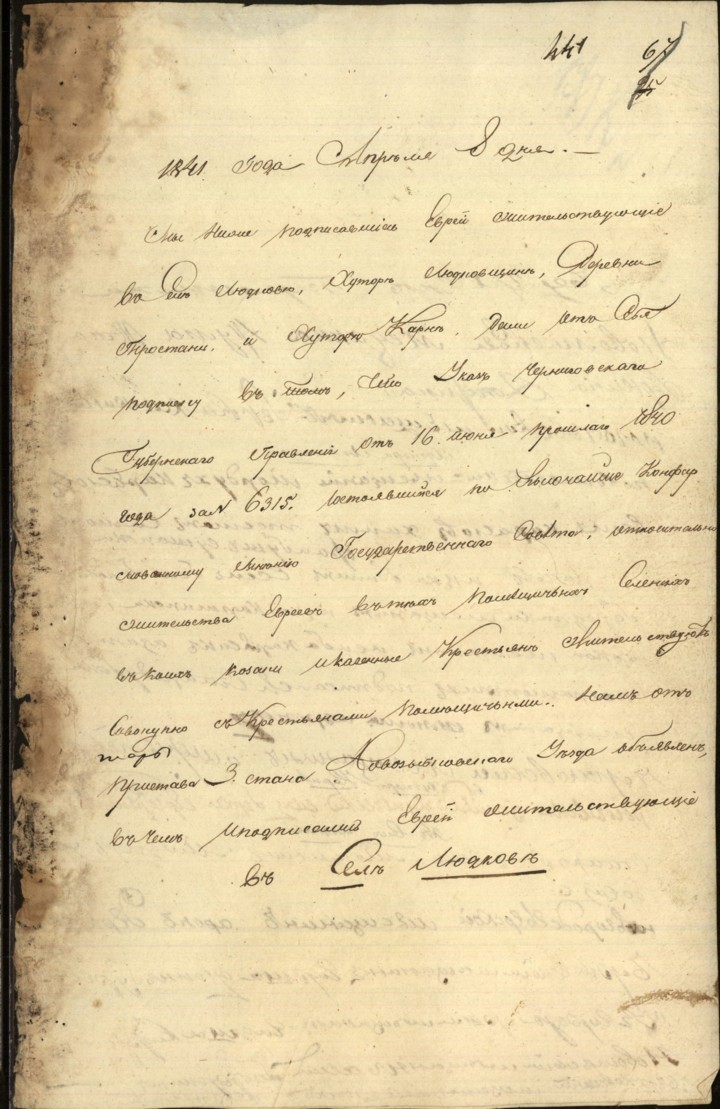 441 67
1841 года Апреля 8 дня.
Мы ниже подписавшиеся Евреи жительствующие
въ Селѣ Людковѣ, Хуторѣ Людковщинѣ, Деревни
и Хуторѣ Карнѣ. Дали отъ Себя
подписку въ томъ, что Указъ Черниговскаго
Губернскаго Правленія отъ 16 июня прошлаго 1840
года за № 6315. состоявшийся по Высочайше Конфир
мованному мнѣнію Государственнаго Совѣта, относительно
жительства Евреевъ въ тѣхъ помѣщичьихъ Селенияхъ
въ коихъ козаки и казенные Крестьянъ жительствуютъ
совокупно съ Крестьянами помещичьими. намъ отъ
Пристава 3. стана Новозыбковскаго Уѣзда объявленъ,
въ чемъ и подписались Евреи жительствующіе
въ Селѣ Людковѣ